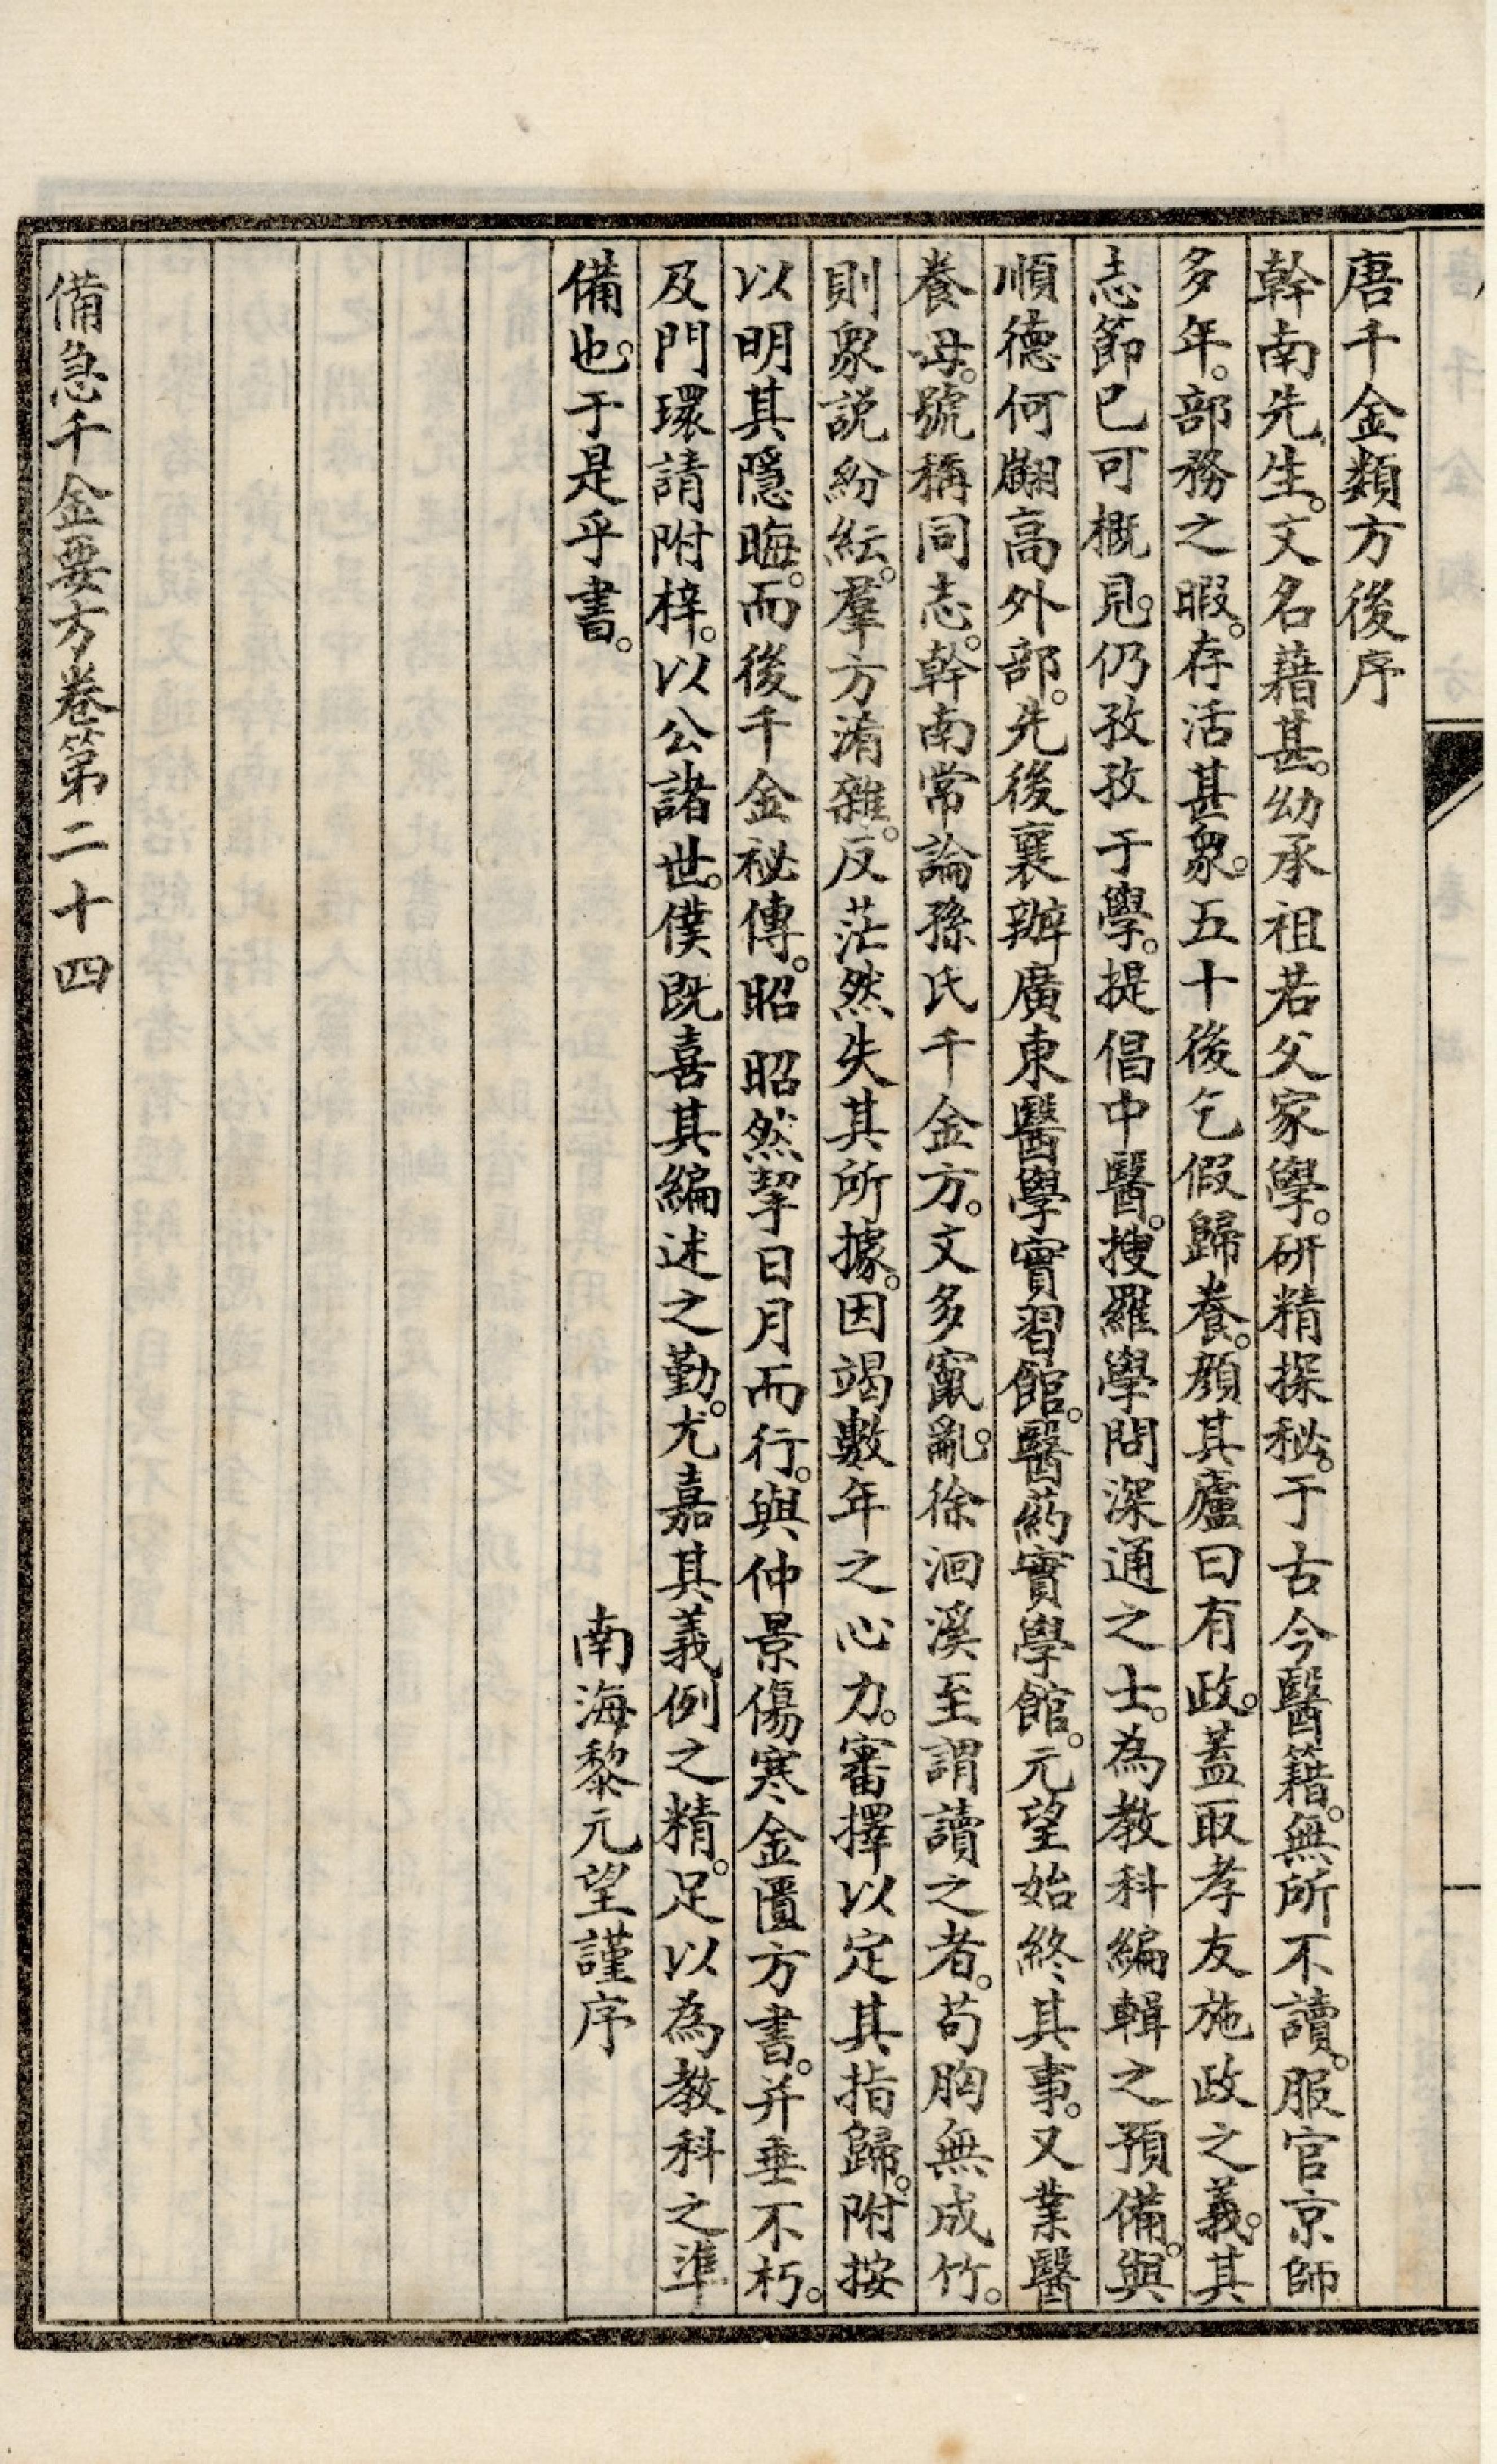 唐千金類方後序
幹南先生。文名藉甚。幼承祖若父家學。研精探秘。于古今醫籍。無所不讀。服官京師
多年。部務之暇。存活甚衆。五十後乞假歸養。顏其廬曰有政。蓋取孝友施政之義。其
志節已可概見。仍孜孜于學。提倡中醫。搜羅學問深通之士。為教科編輯之預備。與
順德何翽高外部。先後襄辦廣東醫學實習館。醫藥實學館。元望始終其事。又業醫
養母。號稱同志。幹南常論孫氏千金方。文多竄亂。徐洄溪至謂讀之者。苟胸無成竹。
則衆説紛紜。羣方淆雜。反茫然失其所據。因竭數年之心力。審擇以定其指歸。附按
以明其隱晦。而後千金祕傳。昭昭然挈日月而行。與仲景傷寒金匱方書。并垂不朽。
及門環請附梓。以公諸世。僕既喜其編述之勤。尤嘉其義例之精。足以為教科之準
備也。于是乎書。
南海黎元望謹序
備急千金要方卷第二十四